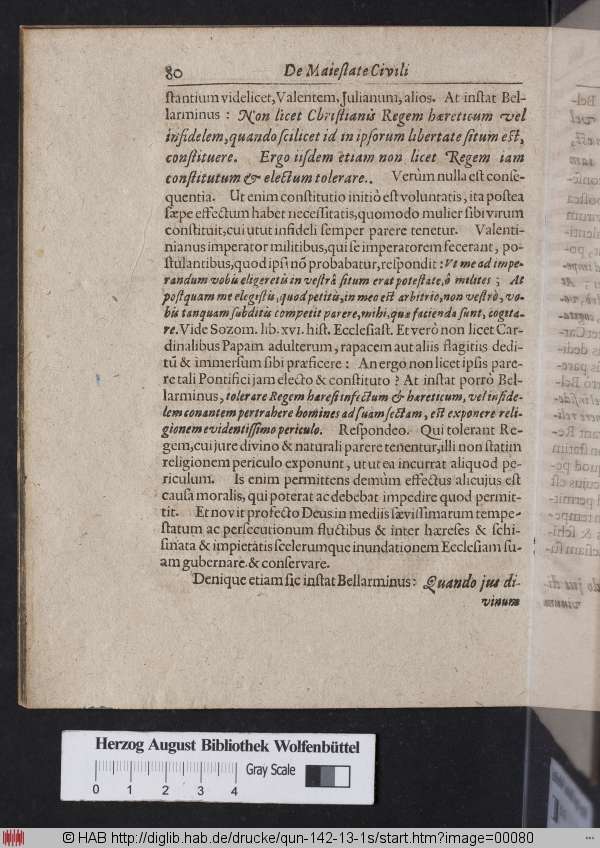 80 De Maiestate Civili
stantium videlicet, Valentem, Julianum, alios. At instat Bel-
larminus: Non licet Christianis Regem hæreticum vel
infidelem, quando scilicet id in ipsorum libertate situm est,
constituere. Ergo iisdem etiam non licet Regem iam
constitutum & electum tolerare.. Verùm nulla est conse-
quentia. Ut enim constitutio initiò est voluntatis, ita postea
sæpe effectum habet necessitatis, quomodo mulier sibi virum
constituit, cui utut infideli semper parere tenetur. Valenti-
nianus imperator militibus, qui se imperatorem fecerant, po-
stulantibus, quod ipsi nō probabatur, respondit: Ut me ad impe-
randum vobis eligeretis in vestrâ situm erat potestate, ô milites; At
postquam me elegistis, quod petitis, in meo est arbitrio, non vestrô, vo-
bis tanquam subditis competit parere, mihi, quæ facienda sunt, cogita-
re. Vide Sozom. lib. xvi. hist. Ecclesiast. Et verò non licet Car-
dinalibus Papam adulterum, rapacem aut aliis flagitiis dedi-
tū & immersum sibi præficere: An ergo non licet ipsis pare-
re tali Pontifici jam electo & constituto? At instat porrò Bel-
larminus, tolerare Regem hæresi infectum & hæreticum, vel infide-
lem conantem pertrahere homines ad suam sectam, est exponere reli-
gionem evidentissimo periculo. Respondeo. Qui tolerant Re-
gem, cui jure divino & naturali parere tenentur, illi non statim
religionem periculo exponunt, ut ut ea incurrat aliquod pe-
riculum. Is enim permittens demùm effectus alicujus est
causa moralis, qui poterat ac debebat impedire quod permit-
tit. Et novit profecto Deus in mediis sævissimarum tempe-
statum ac persecutionum fluctibus & inter hæreses & schi-
smata & impietatis scelerumque inundationem Ecclesiam su-
am gubernare & conservare.
Denique etiam sic instat Bellarminus: Quando jus di-
vinum
Herzog August Bibliothek Wolfenbüttel
Gray Scale
0 1 2 3 4
© HAB http://diglib.hab.de/drucke/qun-142-13-1s/start.htm?image=00080